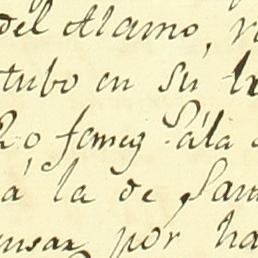 del Alamo,
tubo en su
o Jemez Sala
á la de San
ensar por ha